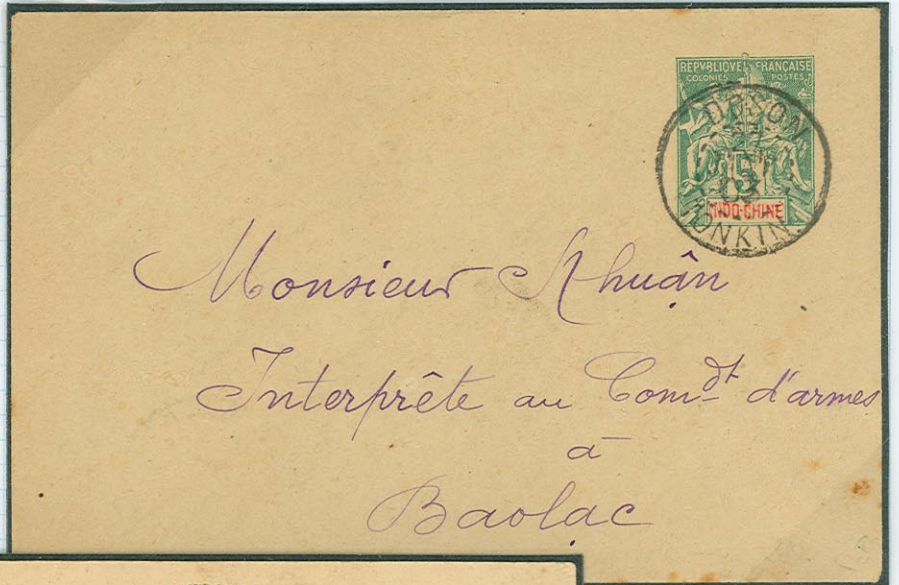 RÉPUBLIQUE FRANÇAISE
COLONIES POSTES
DOSON
5
INDO-CHINE
TONKIN
Monsieur Khuận
Interprête au Comdt d'armes
à
Baolạc